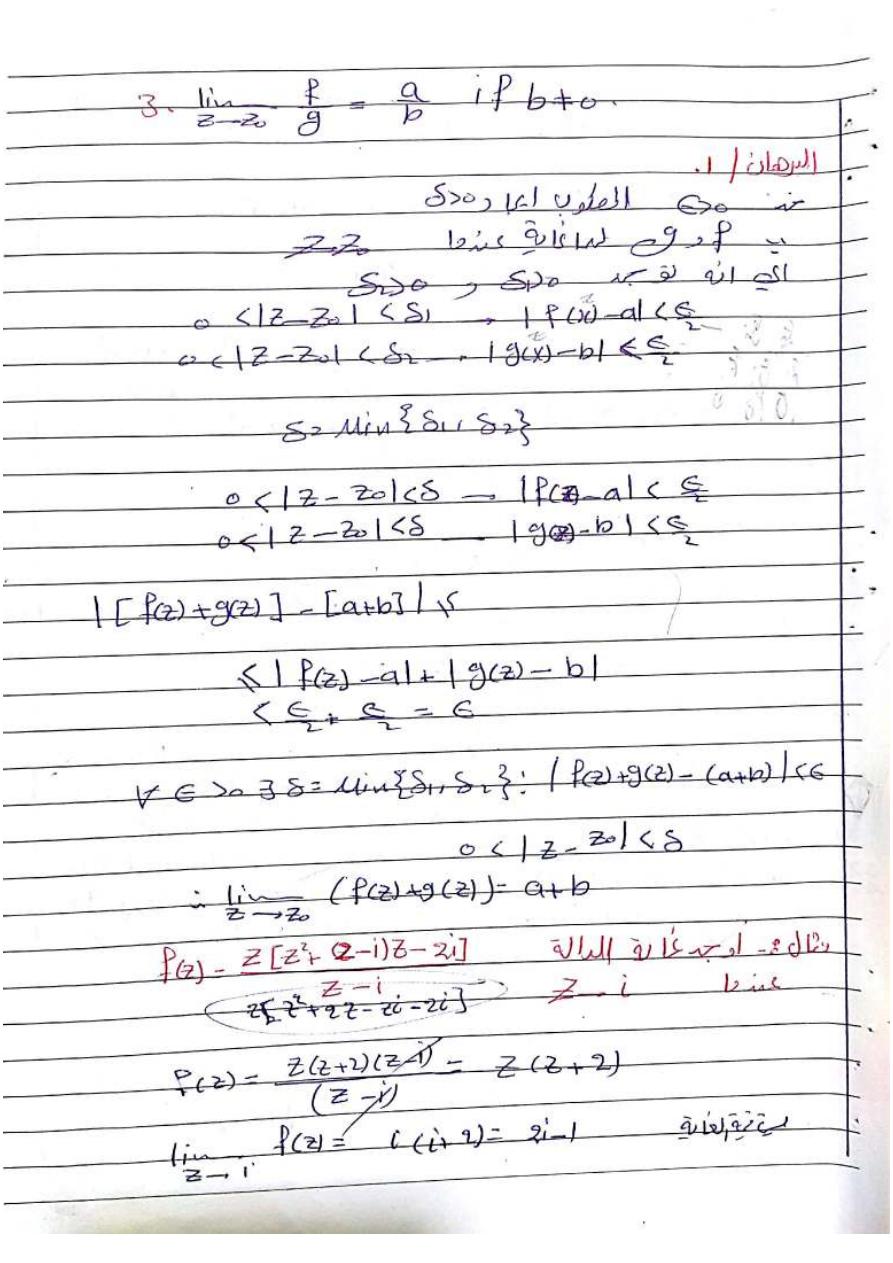 3. lim z→z₀ f/g = a/b if b≠0.
البرهان / 1.
ϵ>0 المطلوب ايجاد δ>0
f و g لها غاية عندما z→z₀
اي انه توجد δ₁>0 و δ₂>0
0<|z-z₀|<δ₁ → |f(z)-a|<ϵ/2
0<|z-z₀|<δ₂ → |g(z)-b|<ϵ/2
δ=Min{δ₁, δ₂}
0<|z-z₀|<δ → |f(z)-a|<ϵ/2
0<|z-z₀|<δ → |g(z)-b|<ϵ/2
|[f(z)+g(z)]-[a+b]| ≤
≤|f(z)-a|+|g(z)-b|
<ϵ/2+ϵ/2=ϵ
∀ϵ>0 ∃δ=Min{δ₁, δ₂}: |f(z)+g(z)-(a+b)|<ϵ
0<|z-z₀|<δ
∴ lim z→z₀ (f(z)+g(z))=a+b
مثال: اوجد غاية الدالة f(z)=z[z²+(2-i)z-2i]/z-i
عندما z→i
z[z²+2z-zi-2i]
f(z)=z(z+2)(z-i)/(z-i)=z(z+2)
lim z→i f(z)=i(i+2)=2i-1